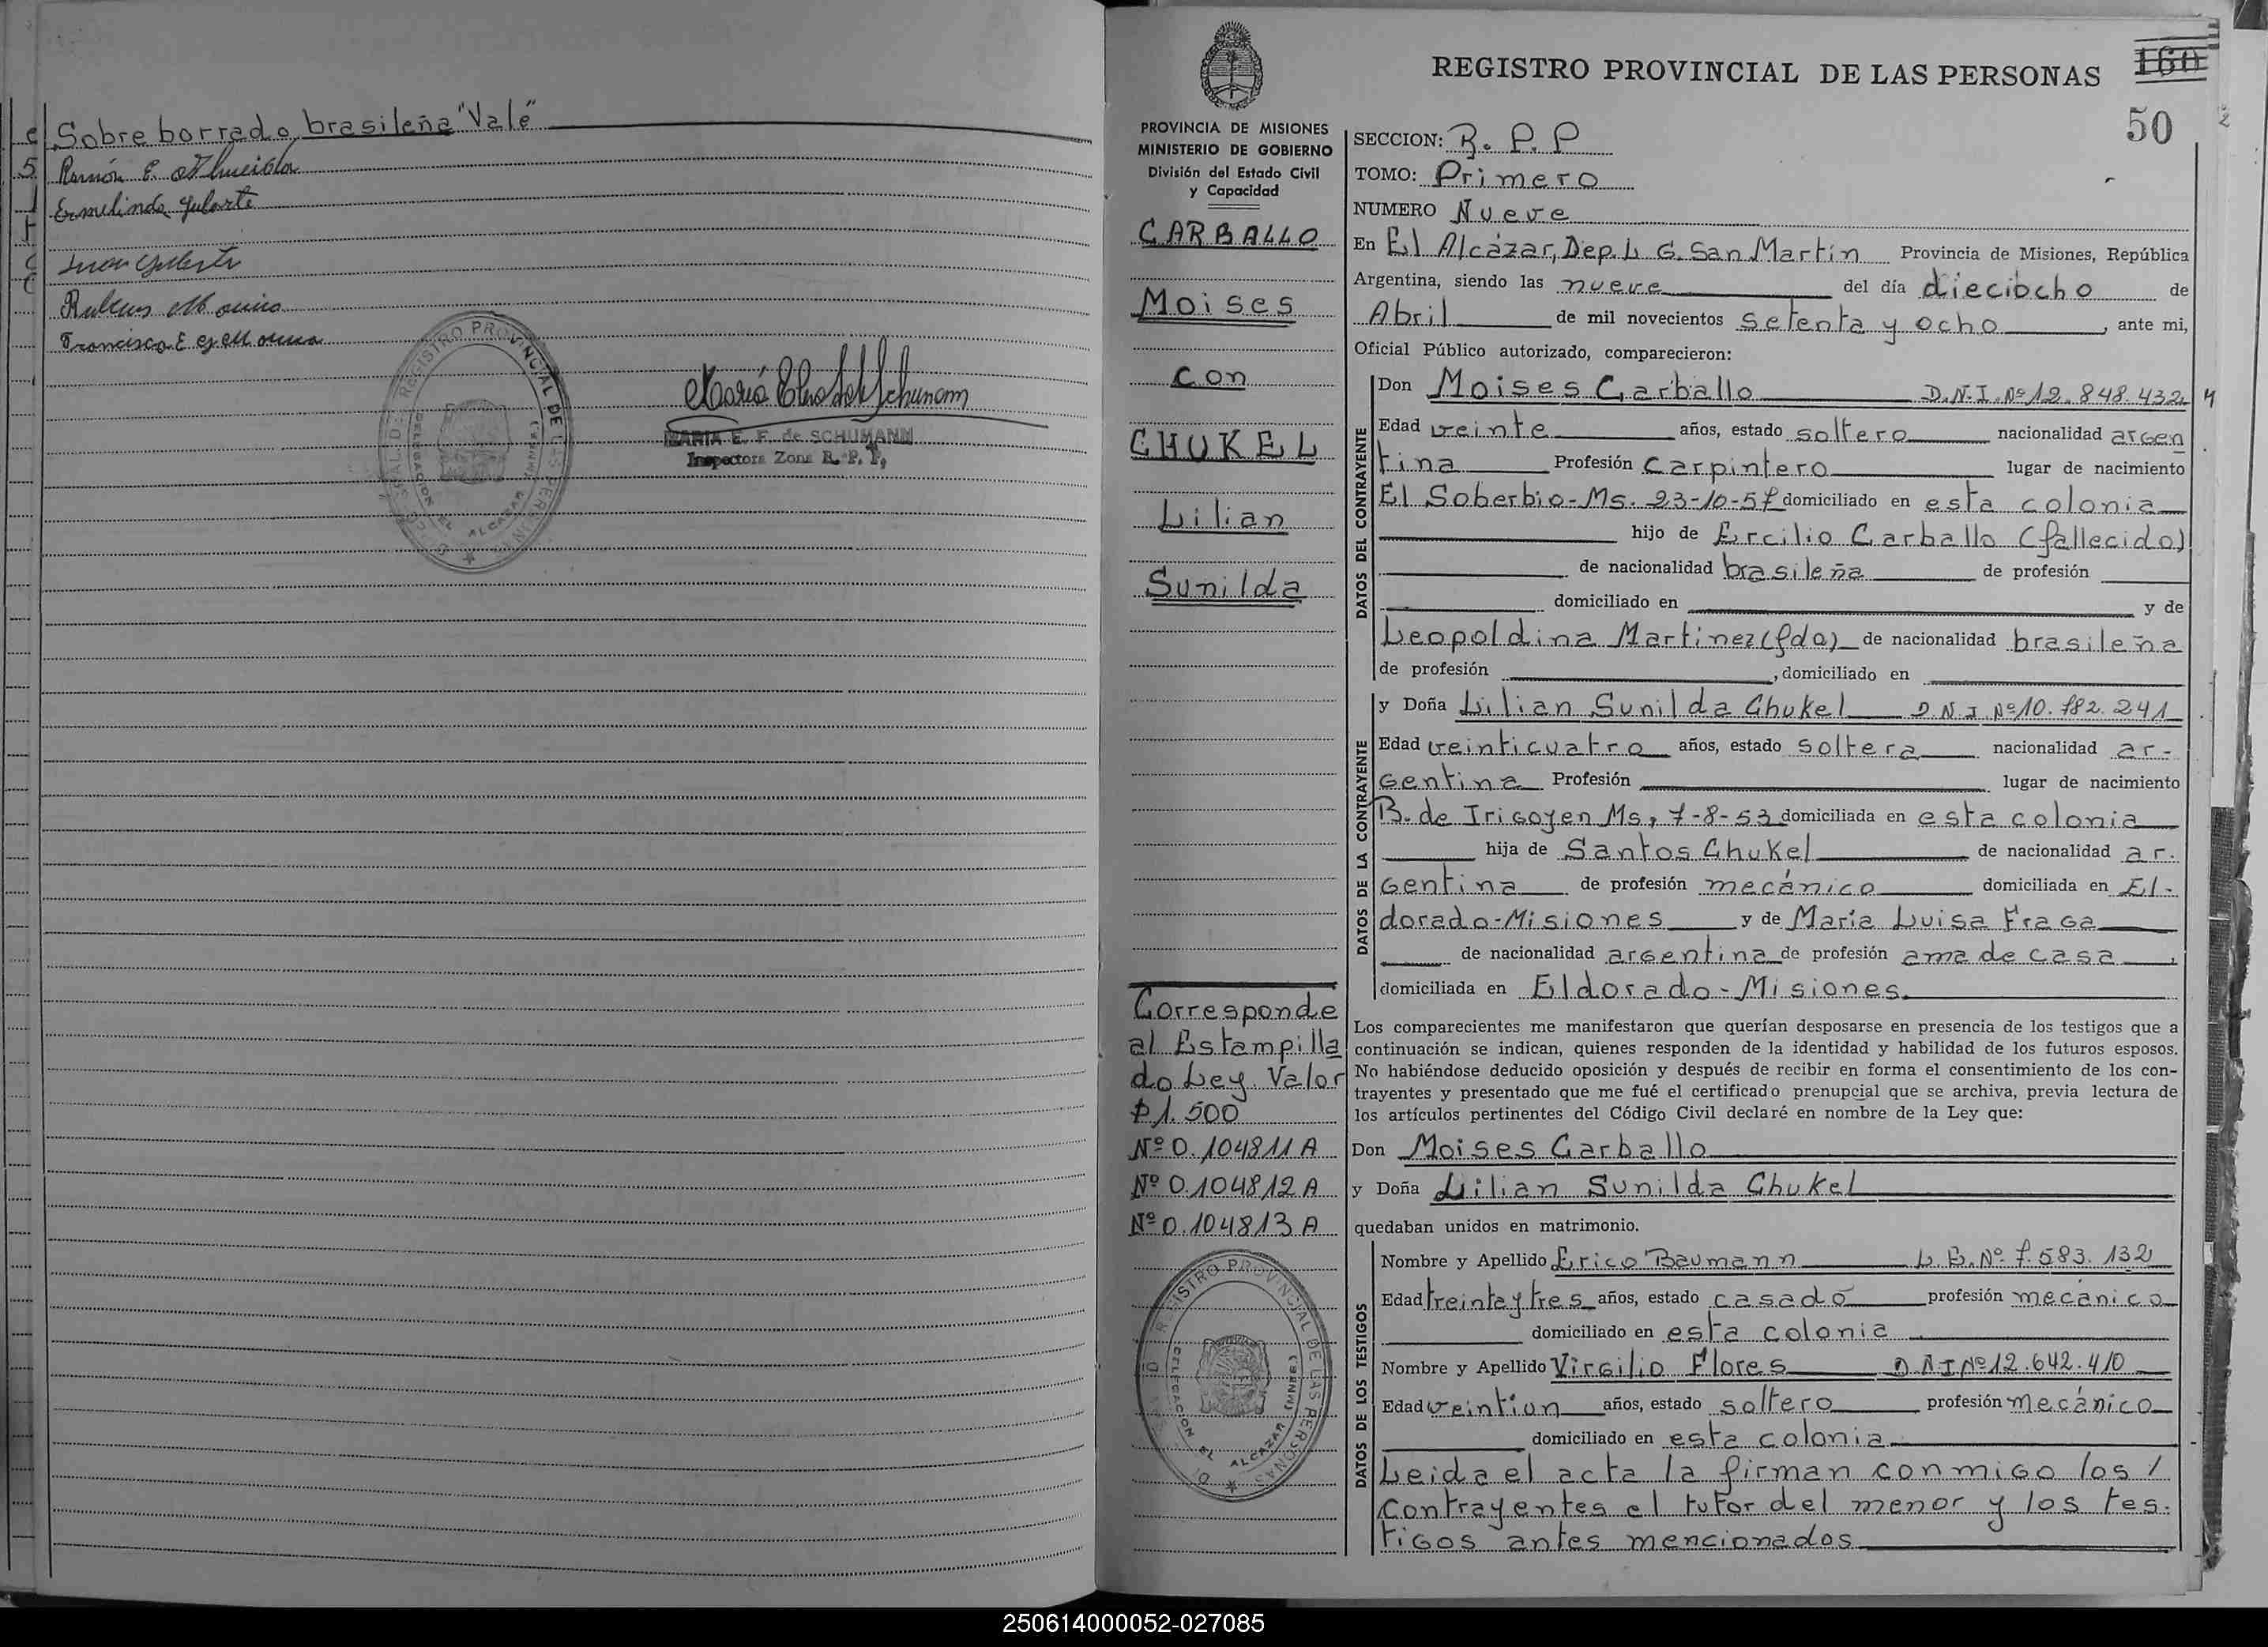 Sobre borrado brasileña "Vale"
Ramón E. Almeida
Ermelinda
Juan
Francisca E
REGISTRO PROVINCIAL DE LAS PERSONAS
DELEGACION EL ALCAZAR
MARIA E. F. de SCHUMANN
Inspectora Zona R. P. P.
REGISTRO PROVINCIAL DE LAS PERSONAS
160
50
PROVINCIA DE MISIONES
MINISTERIO DE GOBIERNO
División del Estado Civil
y Capacidad
CARBALLO
Moises
con
CHUKEL
Lilian
Sunilda
Corresponde
al Estampilla
do Ley. Valor
$1.500
Nº 0.104811 A
Nº 0.104812 A
Nº 0.104813 A
REGISTRO PROVINCIAL DE LAS PERSONAS
DELEGACION EL ALCAZAR
SECCION: R. P. P
TOMO: Primero
NUMERO Nueve
En El Alcázar, Dep. L. G. San Martín Provincia de Misiones, República
Argentina, siendo las nueve del día dieciocho de
Abril de mil novecientos setenta y ocho, ante mi,
Oficial Público autorizado, comparecieron:
DATOS DEL CONTRAYENTE
Don Moises Carballo D.N.I. Nº 12.848.432
Edad veinte años, estado soltero nacionalidad argen
tina Profesión carpintero lugar de nacimiento
El Soberbio-Ms. 23-10-57 domiciliado en esta colonia
hijo de Ercilio Carballo (fallecido)
de nacionalidad brasileña de profesión
domiciliado en y de
Leopoldina Martinez (fda) de nacionalidad brasileña
de profesión , domiciliado en
DATOS DE LA CONTRAYENTE
y Doña Lilian Sunilda Chukel D.N.I. Nº 10.782.241
Edad veinticuatro años, estado soltera nacionalidad ar-
gentina Profesión lugar de nacimiento
B. de Irigoyen Ms, 7-8-53 domiciliada en esta colonia
hija de Santos Chukel de nacionalidad ar.
gentina de profesión mecánico domiciliada en El-
dorado-Misiones y de María Luisa Fraga
de nacionalidad argentina de profesión ama de casa,
domiciliada en Eldorado-Misiones.
Los comparecientes me manifestaron que querían desposarse en presencia de los testigos que a
continuación se indican, quienes responden de la identidad y habilidad de los futuros esposos.
No habiéndose deducido oposición y después de recibir en forma el consentimiento de los con-
trayentes y presentado que me fué el certificado prenupcial que se archiva, previa lectura de
los artículos pertinentes del Código Civil declaré en nombre de la Ley que:
Don Moises Carballo
y Doña Lilian Sunilda Chukel
quedaban unidos en matrimonio.
DATOS DE LOS TESTIGOS
Nombre y Apellido Erico Baumann L.E. Nº 7.583.132
Edad treinta y tres años, estado casado profesión mecánico
domiciliado en esta colonia
Nombre y Apellido Virgilio Flores D.N.I Nº 12.642.410
Edad veintiun años, estado soltero profesión mecánico
domiciliado en esta colonia
Leida el acta la firman conmigo los /
contrayentes el tutor del menor y los tes.
tigos antes mencionados
250614000052-027085